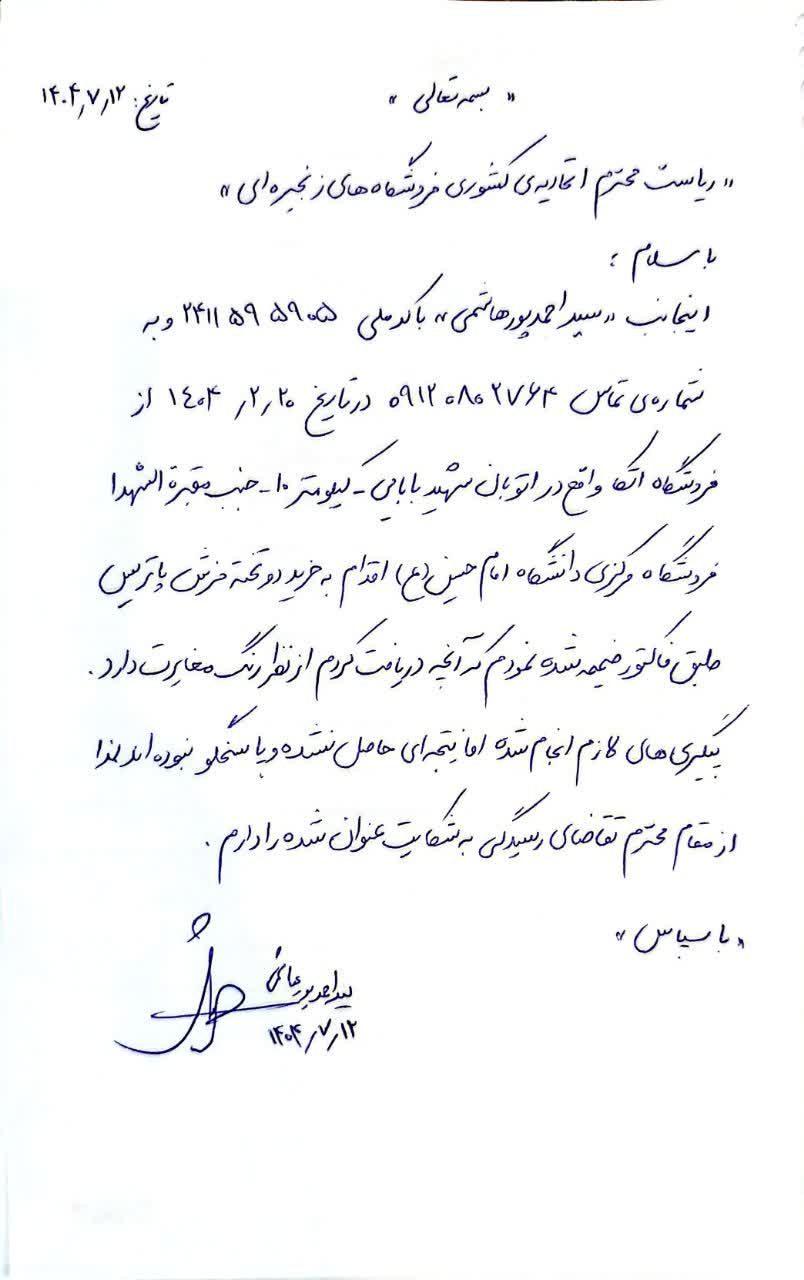 « بسمه تعالی »
تاریخ: ۱۴۰۴٫۷٫۱۲
« ریاست محترم اتحادیه‌ی کشوری فروشگاه های زنجیره ای »
با سلام ؛
اینجانب «سید احمد پورهاشمی» با کد ملی ۲۴۱۱۵۹۵۹۰۵ و به
شماره‌ی تماس ۰۹۱۲۰۸۰۲۷۶۴ در تاریخ ۱۴۰۴٫۲٫۲۰ از
فروشگاه اتکا واقع در اتوبان شهید بابایی - کیلومتر ۱۰ - جنب مقبرة الشهدا
فروشگاه مرکزی دانشگاه امام حسین (ع) اقدام به خرید دو تخته فرش پاتریس
طبق فاکتور ضمیمه شده نمودم که آنچه دریافت کردم از نظر رنگ مغایرت دارد .
پیگیری های لازم انجام شده اما نتیجه ای حاصل نشده و پاسخگو نبوده اند لذا
از مقام محترم تقاضای رسیدگی به شکایت عنوان شده را دارم .
« با سپاس »
سید احمد پورهاشمی
۱۴۰۴٫۷٫۱۲